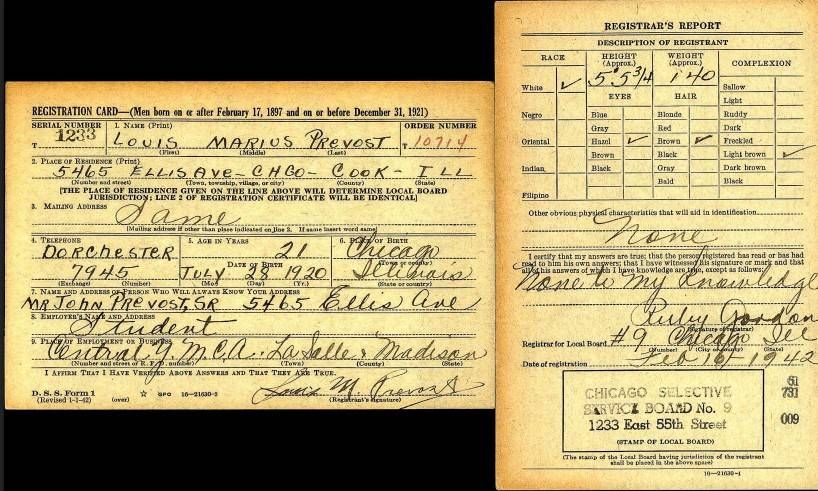 REGISTRATION CARD—(Men born on or after February 17, 1897 and on or before December 31, 1921)
SERIAL NUMBER 1. NAME (Print) ORDER NUMBER
T 1233 LOUIS MARIUS PREVOST T 10714
(First) (Middle) (Last)
2. PLACE OF RESIDENCE (Print)
5465 ELLIS AVE - CHGO - COOK - ILL
(Number and street) (Town, township, village, or city) (County) (State)
[THE PLACE OF RESIDENCE GIVEN ON THE LINE ABOVE WILL DETERMINE LOCAL BOARD
JURISDICTION; LINE 2 OF REGISTRATION CERTIFICATE WILL BE IDENTICAL]
3. MAILING ADDRESS
Same
[Mailing address if other than place indicated on line 2. If same insert word same]
4. TELEPHONE 5. AGE IN YEARS 6. PLACE OF BIRTH
DORCHESTER 21 Chicago
DATE OF BIRTH (Town or county)
7945 JULY 28 1920 Illinois
(Exchange) (Number) (Mo.) (Day) (Yr.) (State or country)
7. NAME AND ADDRESS OF PERSON WHO WILL ALWAYS KNOW YOUR ADDRESS
MR JOHN PREVOST, SR 5465 Ellis Ave
8. EMPLOYER'S NAME AND ADDRESS
Student
9. PLACE OF EMPLOYMENT OR BUSINESS
Central Y.M.C.A. LaSalle & Madison
(Number and street or R. F. D. number) (Town) (County) (State)
I AFFIRM THAT I HAVE VERIFIED ABOVE ANSWERS AND THAT THEY ARE TRUE.
Louis M. Prevost
D. S. S. Form 1
(Revised 1-1-42) (over) ☆ GPO 16—21630-2 (Registrant's signature)
REGISTRAR'S REPORT
DESCRIPTION OF REGISTRANT
RACE HEIGHT (Approx.) WEIGHT (Approx.) COMPLEXION
White ✓ 5' 5 3/4 140 Sallow
EYES HAIR Light
Negro Blue Blonde Ruddy
Gray Red Dark
Oriental Hazel ✓ Brown ✓ Freckled
Brown Black Light brown ✓
Indian Gray Dark brown
Bald Black
Filipino
Other obvious physical characteristics that will aid in identification
None
I certify that my answers are true; that the person registered has read or has had
read to him his own answers; that I have witnessed his signature or mark and that
all of his answers of which I have knowledge are true, except as follows:
None to my Knowledge
Ruby Gordon
(Signature of registrar)
Registrar for Local Board #9 Chicago Ill
(Number) (City or county) (State)
Date of registration Feb 16 1942
CHICAGO SELECTIVE
SERVICE BOARD No. 9
1233 East 55th Street
(STAMP OF LOCAL BOARD)
51
731
009
(The stamp of the Local Board having jurisdiction of the registrant
shall be placed in the above space)
16—21630-1